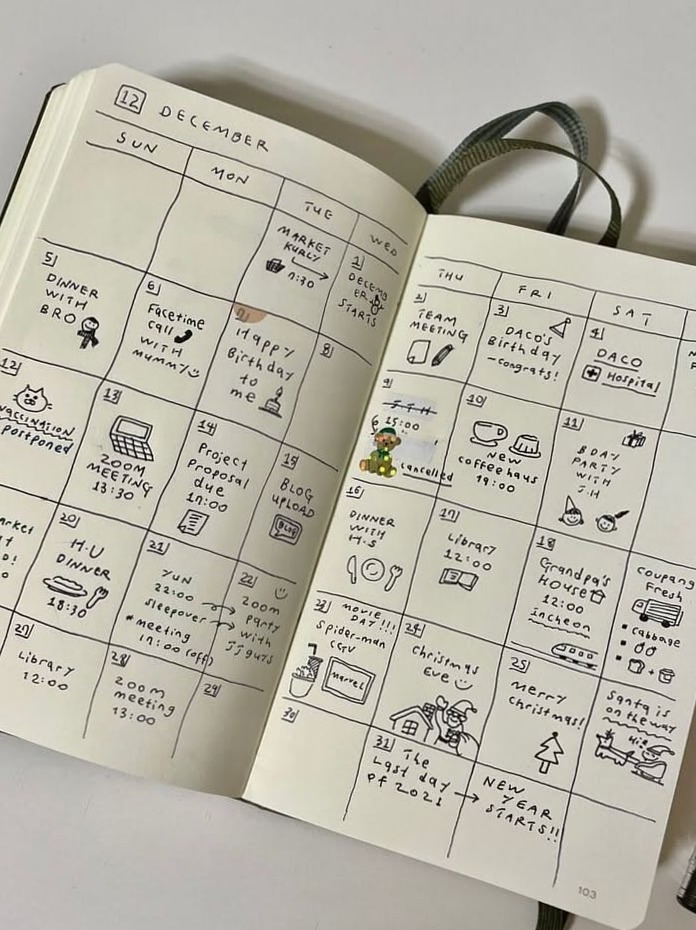 12 DECEMBER
SUN MON TUE WED THU FRI SAT
MARKET
KURLY
7:30
1
DECEMB
ER
STARTS
2
TEAM
MEETING
3
DACO'S
Birthday
-congrats!
4
DACO
Hospital
5
DINNER
WITH
BRO
6
Facetime
call
WITH
mummy
7
Happy
Birthday
to
me
8
9
J.H
15:00
cancelled
10
new
coffeehaus
19:00
11
BDAY
PARTY
WITH
J.H
12
VACCINATION
Postponed
13
ZOOM
MEETING
13:30
14
Project
Proposal
due
17:00
15
BLOG
UPLOAD
BLOG
16
DINNER
WITH
H.S
17
Library
12:00
18
Grandpa's
House
12:00
Incheon
Coupang
Fresh
cabbage
+
20
H.U
DINNER
18:30
21
YUN
22:00
sleepover
*meeting
17:00 (off)
22
zoom
party
with
JJ guys
23
MOVIE
DAY!!!
Spider-man
CGV
Marvel
24
Christmas
Eve
25
merry
christmas!
Santa is
on the way
Hi~
27
Library
12:00
28
zoom
meeting
13:00
29
30
31
The
Last day
of 2021
NEW
YEAR
STARTS!!
103